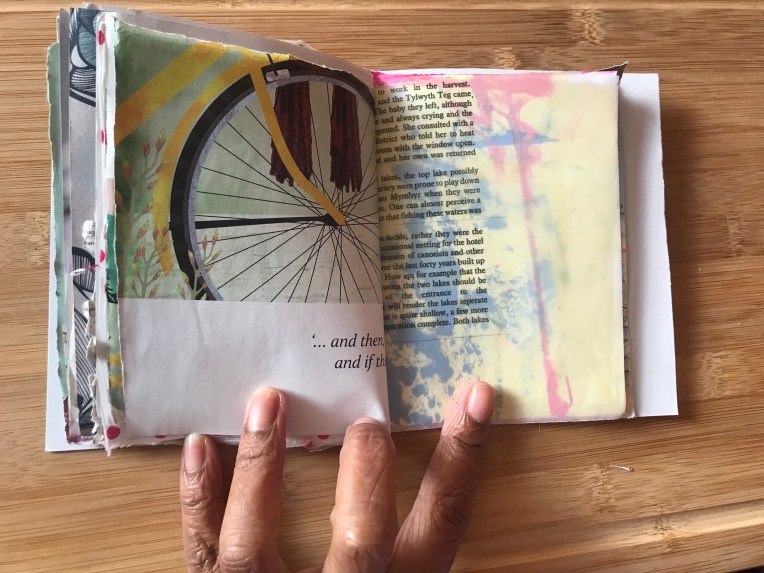 han
‘... and then,
and if th
to work in the harvest.
and the Tylwyth Teg came,
The baby they left, although
and always crying and the
pened. She consulted with a
district who told her to heat
room with the window open.
and her own was returned
lakes, the top lake possibly
were prone to play down
Mymbyr when they were
One can almost perceive a
that fishing these waters was
locals, rather they were the
occasional netting for the hotel
domain of canoeists and other
the last forty years built up
How apt for example that the
the two lakes should be
of the entrance to the
will render the lakes seperate
is quite shallow, a few more
eration complete. Both lakes